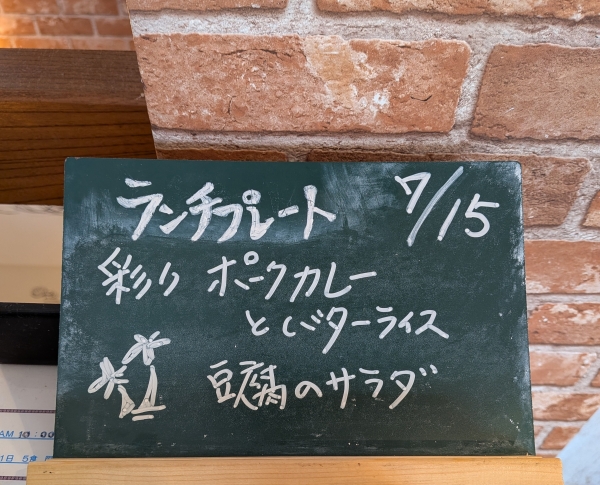 ランチプレート 7/15
彩り ポークカレー
とバターライス
豆腐のサラダ
AM 10:00
1日 5食